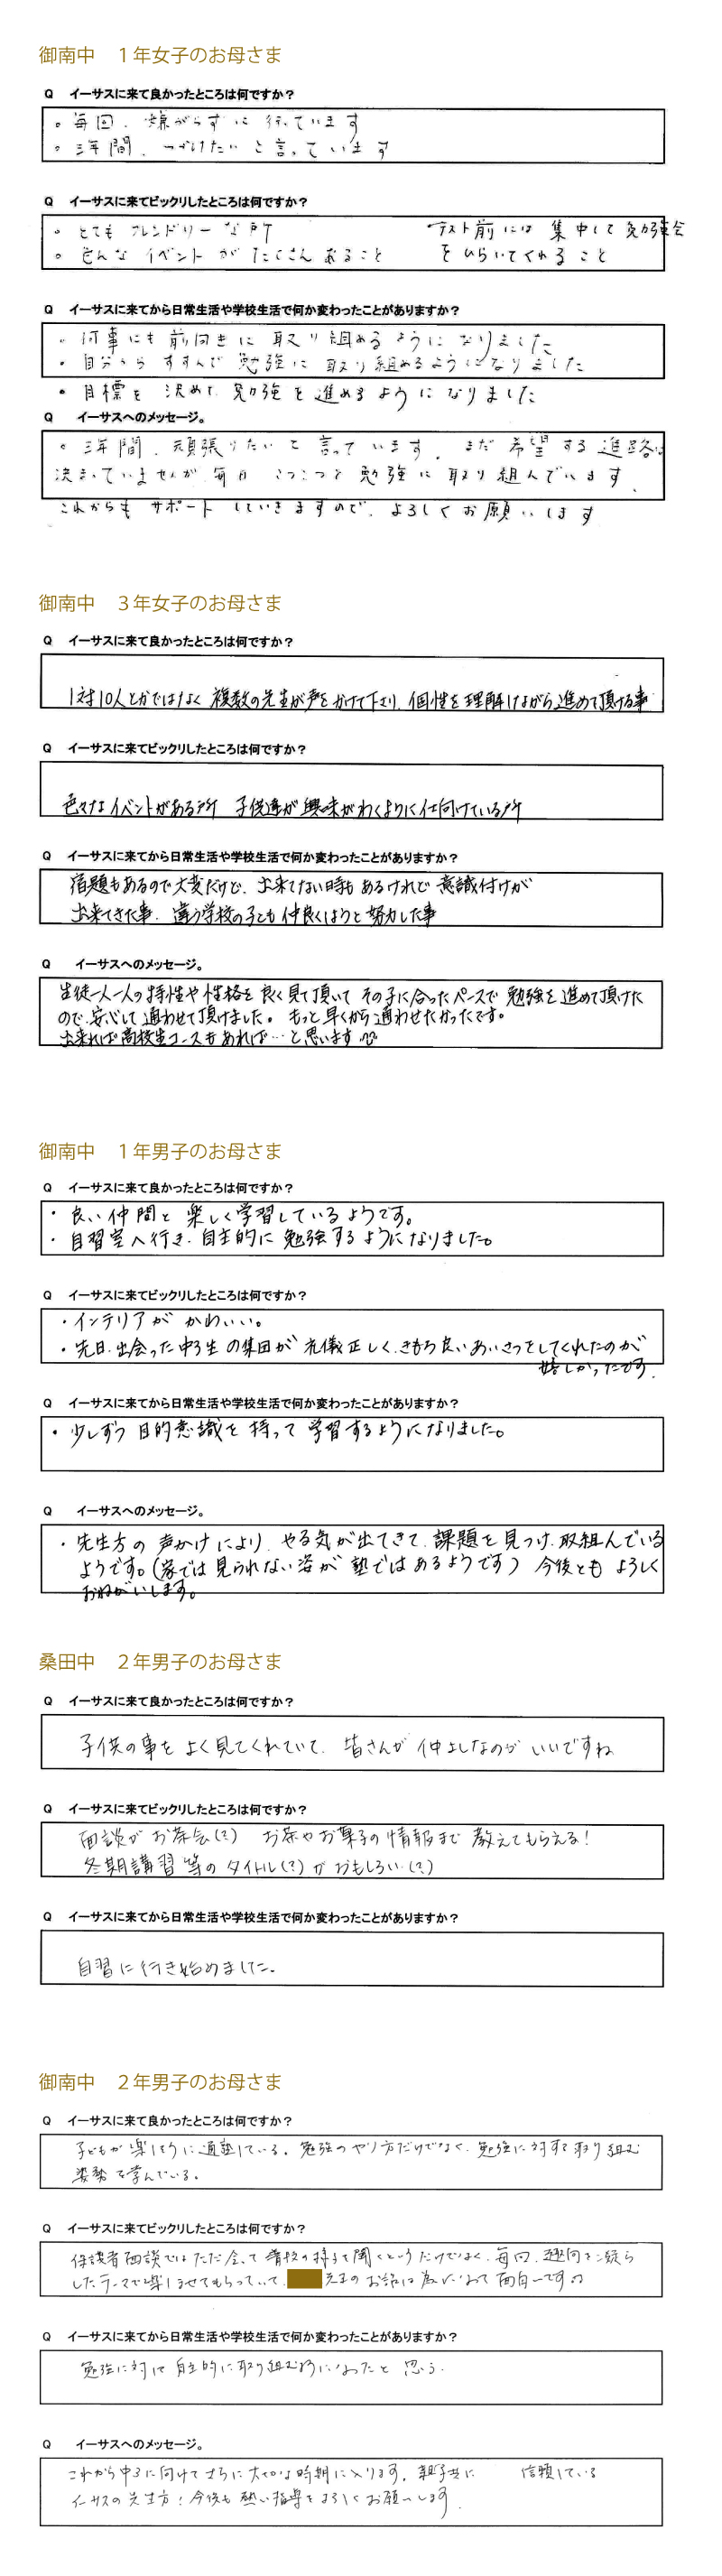 御南中　１年女子のお母さま
Q　イーサスに来て良かったところは何ですか？
。毎回、嫌がらずに 行っています
。三年間、つづけたい と言っています
Q　イーサスに来てビックリしたところは何ですか？
。とても フレンドリーな所
テスト前には 集中して 勉強会
。色んな イベント が たくさん あること
をひらいてくれること
Q　イーサスに来てから日常生活や学校生活で何か変わったことがありますか？
。何事にも 前向きに 取り組めるように なりました
・自分から すすんで 勉強に 取り組めるようになりました
・目標を 決めて 勉強を 進めるように なりました
Q　イーサスへのメッセージ。
。三年間、頑張りたいと言っています。まだ 希望する 進路は
決まっていませんが、毎日 こつこつと 勉強に 取り組んでいます。
これからも サポート していきますので、よろしく お願いします
御南中　３年女子のお母さま
Q　イーサスに来て良かったところは何ですか？
1対10人とかではなく 複数の先生が声をかけて下さり、個性を理解しながら進めて頂ける事
Q　イーサスに来てビックリしたところは何ですか？
色々なイベントがある所 子供達が興味がわくように仕向けている所
Q　イーサスに来てから日常生活や学校生活で何か変わったことがありますか？
宿題もあるので大変だけど、出来てない時もあるけれど 意識付けが
出来てきた事、違う学校の子とも 仲良くしようと努力した事
Q　イーサスへのメッセージ。
生徒一人一人の特性や性格を良く見て頂いて その子に合ったペースで 勉強を進めて頂けた
ので、安心して通わせて頂けました。もっと早くから通わせたかったです。
出来れば高校生コースもあれば…と思います
御南中　１年男子のお母さま
Q　イーサスに来て良かったところは何ですか？
・良い仲間と 楽しく学習しているようです。
・自習室へ行き、自主的に 勉強するようになりました。
Q　イーサスに来てビックリしたところは何ですか？
・インテリアが かわいい。
・先日、出会った中3生の集団が 礼儀正しく、きもち良いあいさつをしてくれたのが
嬉しかったです。
Q　イーサスに来てから日常生活や学校生活で何か変わったことがありますか？
・少しずつ 目的意識を持って 学習するようになりました。
Q　イーサスへのメッセージ。
・先生方の声かけにより、やる気が出てきて、課題を見つけ、取組んでいる
ようです。（家では見られない姿が 塾ではあるようです）今後とも よろしく
おねがいします。
桑田中　２年男子のお母さま
Q　イーサスに来て良かったところは何ですか？
子供の事をよく見てくれていて、皆さんが 仲よしなのが いいですね
Q　イーサスに来てビックリしたところは何ですか？
面談がお茶会(?) お茶やお菓子の情報まで 教えてもらえる！
冬期講習等のタイトル(?)がおもしろい(?)
Q　イーサスに来てから日常生活や学校生活で何か変わったことがありますか？
自習に行き始めました。
御南中　２年男子のお母さま
Q　イーサスに来て良かったところは何ですか？
子どもが楽しそうに通塾している。勉強のやり方だけでなく、勉強に対する取り組む
姿勢を学んでいる。
Q　イーサスに来てビックリしたところは何ですか？
保護者面談ではただ会って 普段の様子を聞くというだけでなく、毎回、趣向をこ凝ら
したテーマで楽しませてもらっていて、先生のお話は為になって面白いです
Q　イーサスに来てから日常生活や学校生活で何か変わったことがありますか？
勉強に対して 自主的に取り組むようになったと思う。
Q　イーサスへのメッセージ。
これから中3に向けてさらに大切な時期に入ります。親子共に 信頼している
イーサスの先生方！今後も 熱い指導をよろしくお願いします。